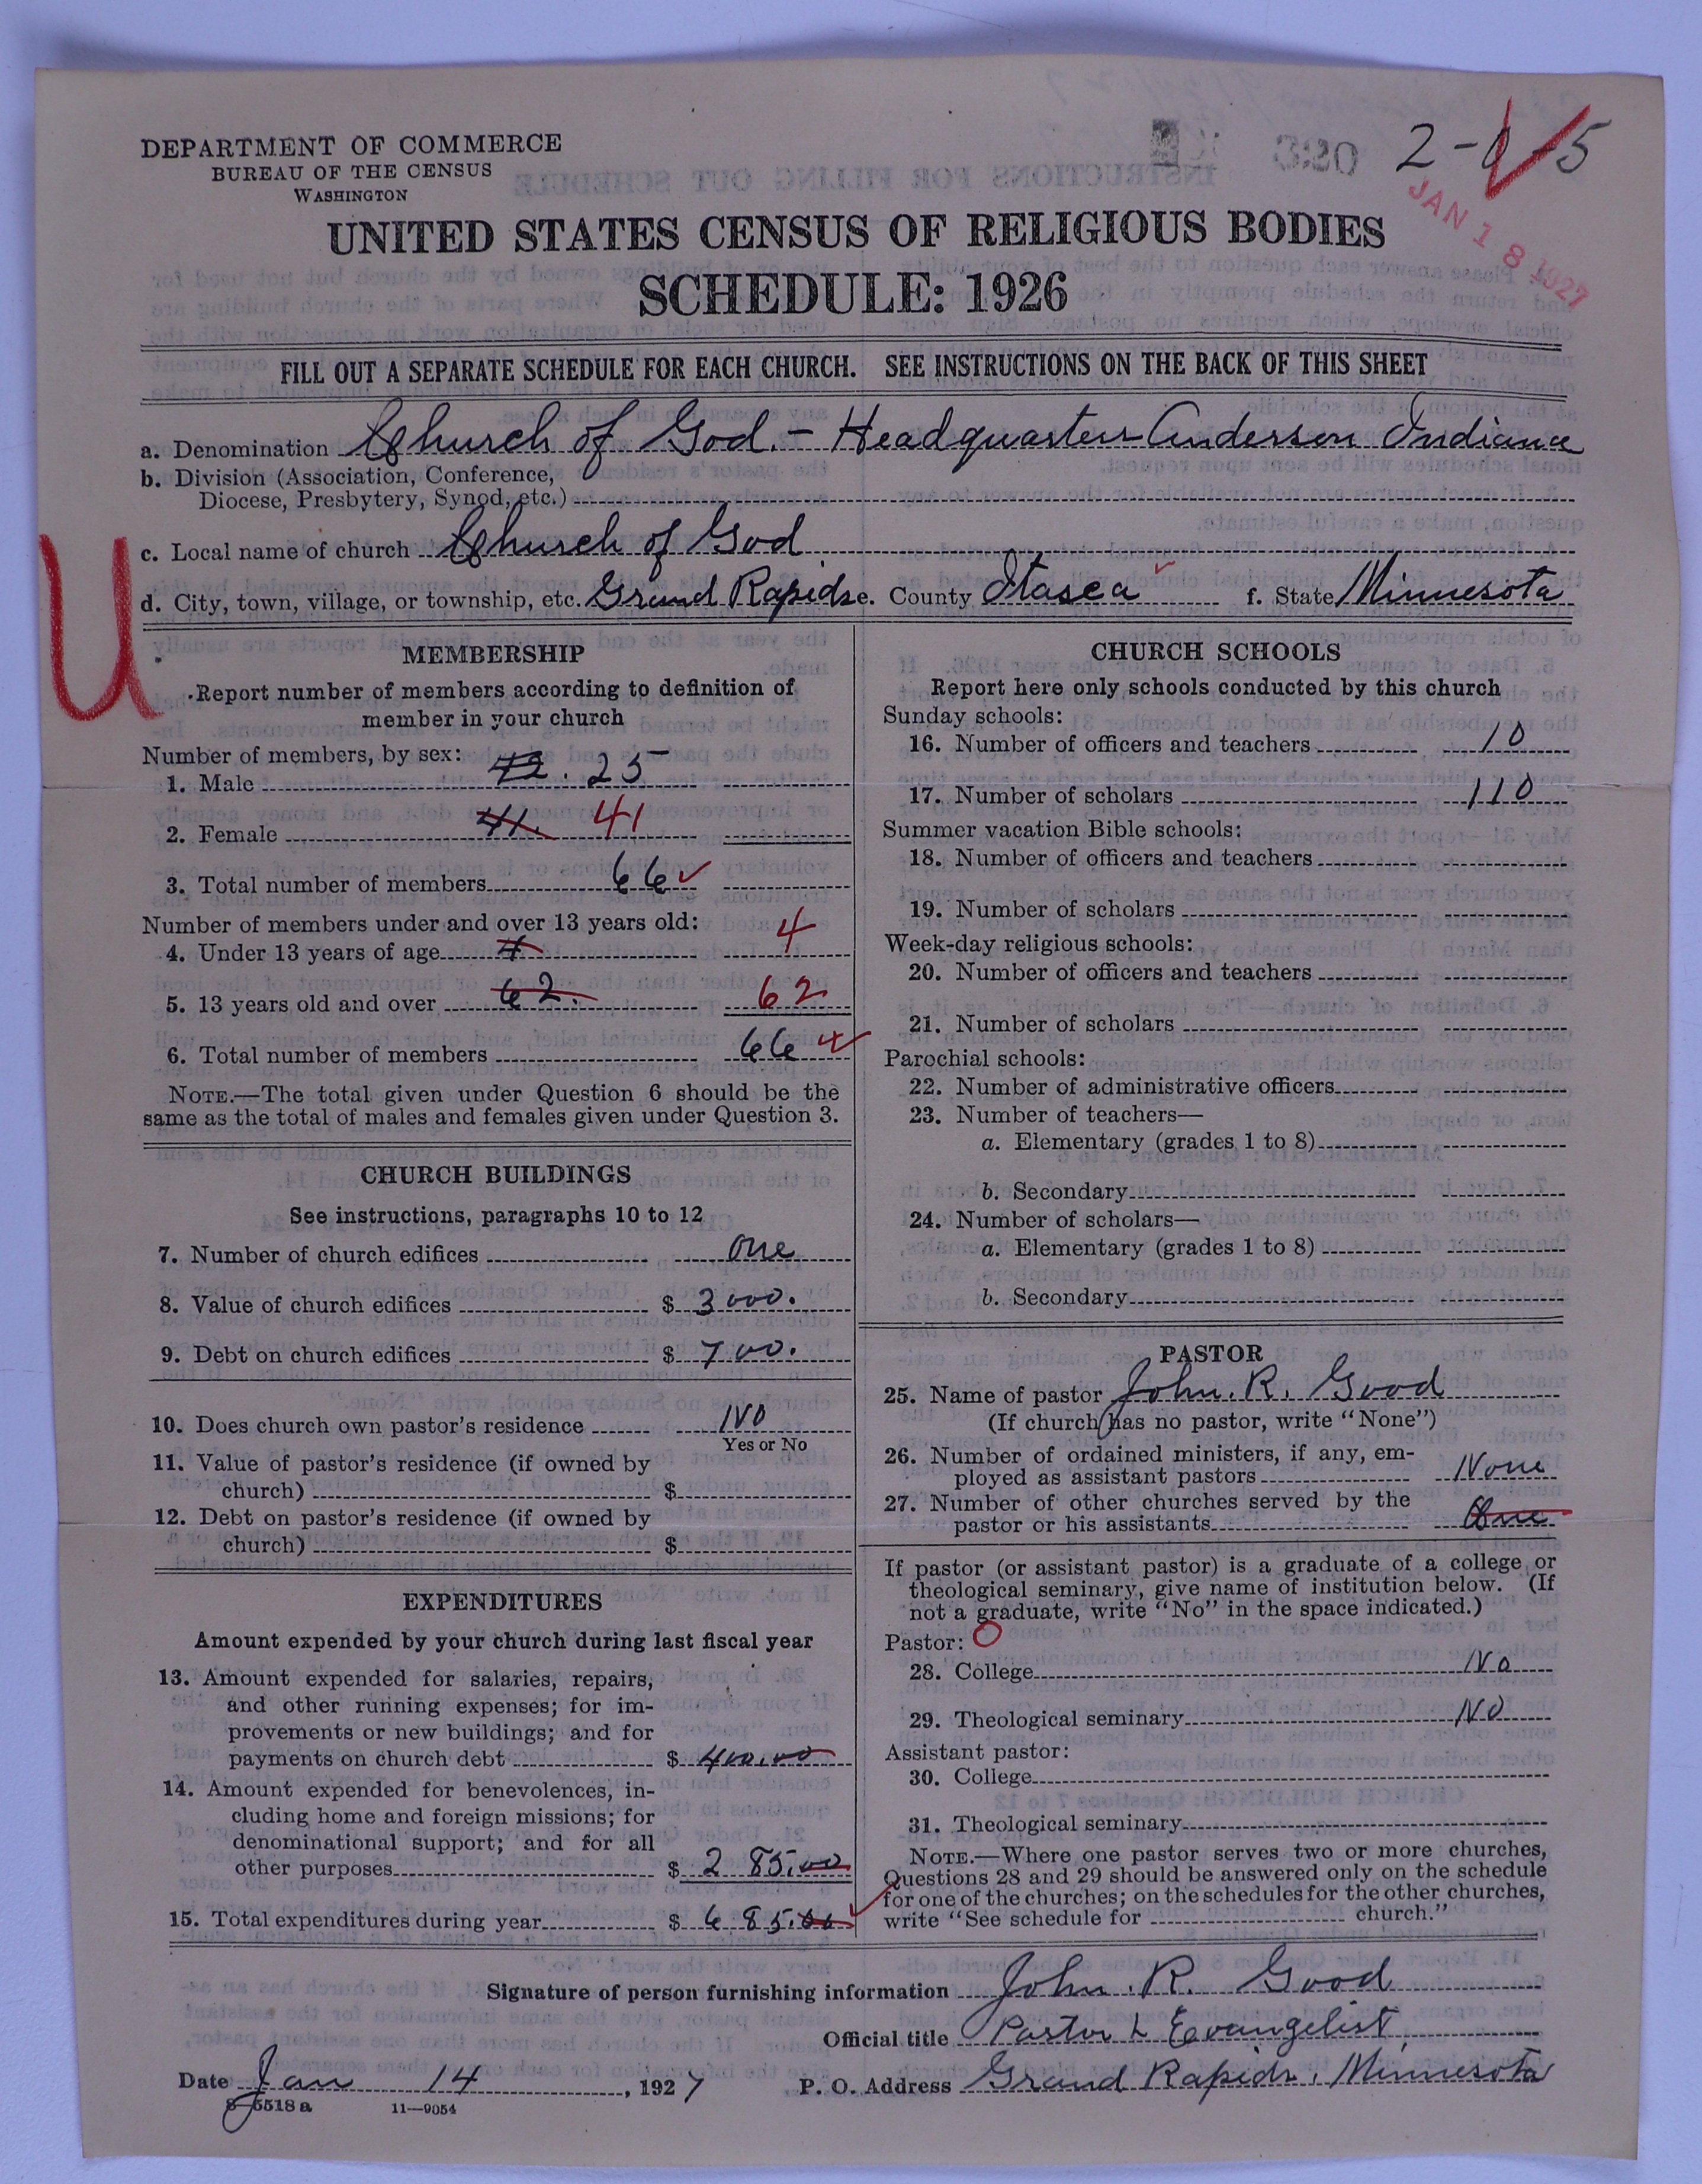 DEPARTMENT OF COMMERCE
BUREAU OF THE CENSUS
WASHINGTON
2-0-5
JAN 18 1927
UNITED STATES CENSUS OF RELIGIOUS BODIES
SCHEDULE: 1926
FILL OUT A SEPARATE SCHEDULE FOR EACH CHURCH. SEE INSTRUCTIONS ON THE BACK OF THIS SHEET
a. Denomination Church of God. - Headquarters Anderson Indiana
b. Division (Association, Conference,
Diocese, Presbytery, Synod, etc.)
c. Local name of church Church of God
d. City, town, village, or township, etc. Grand Rapids e. County Itasca f. State Minnesota
U
MEMBERSHIP
Report number of members according to definition of
member in your church
Number of members, by sex:
1. Male 42. 25
2. Female 41. 41
3. Total number of members 66
Number of members under and over 13 years old:
4. Under 13 years of age 4 4
5. 13 years old and over 62. 62
6. Total number of members 66
NOTE.—The total given under Question 6 should be the
same as the total of males and females given under Question 3.
CHURCH BUILDINGS
See instructions, paragraphs 10 to 12
7. Number of church edifices One
8. Value of church edifices $ 3000.
9. Debt on church edifices $ 700.
10. Does church own pastor's residence No
Yes or No
11. Value of pastor's residence (if owned by
church) $
12. Debt on pastor's residence (if owned by
church) $
EXPENDITURES
Amount expended by your church during last fiscal year
13. Amount expended for salaries, repairs,
and other running expenses; for im-
provements or new buildings; and for
payments on church debt $ 400.00
14. Amount expended for benevolences, in-
cluding home and foreign missions; for
denominational support; and for all
other purposes $ 285.00
15. Total expenditures during year $ 685.00
CHURCH SCHOOLS
Report here only schools conducted by this church
Sunday schools:
16. Number of officers and teachers 10
17. Number of scholars 110
Summer vacation Bible schools:
18. Number of officers and teachers
19. Number of scholars
Week-day religious schools:
20. Number of officers and teachers
21. Number of scholars
Parochial schools:
22. Number of administrative officers
23. Number of teachers—
a. Elementary (grades 1 to 8)
b. Secondary
24. Number of scholars—
a. Elementary (grades 1 to 8)
b. Secondary
PASTOR
25. Name of pastor John. R. Good
(If church has no pastor, write "None")
26. Number of ordained ministers, if any, em-
ployed as assistant pastors None
27. Number of other churches served by the
pastor or his assistants One
If pastor (or assistant pastor) is a graduate of a college or
theological seminary, give name of institution below. (If
not a graduate, write "No" in the space indicated.)
Pastor:
28. College No
29. Theological seminary No
Assistant pastor:
30. College
31. Theological seminary
NOTE.—Where one pastor serves two or more churches,
Questions 28 and 29 should be answered only on the schedule
for one of the churches; on the schedules for the other churches,
write "See schedule for church."
Signature of person furnishing information John. R. Good
Official title Pastor & Evangelist
Date Jan 14, 1927 P. O. Address Grand Rapids, Minnesota
8-5518 a 11-9054